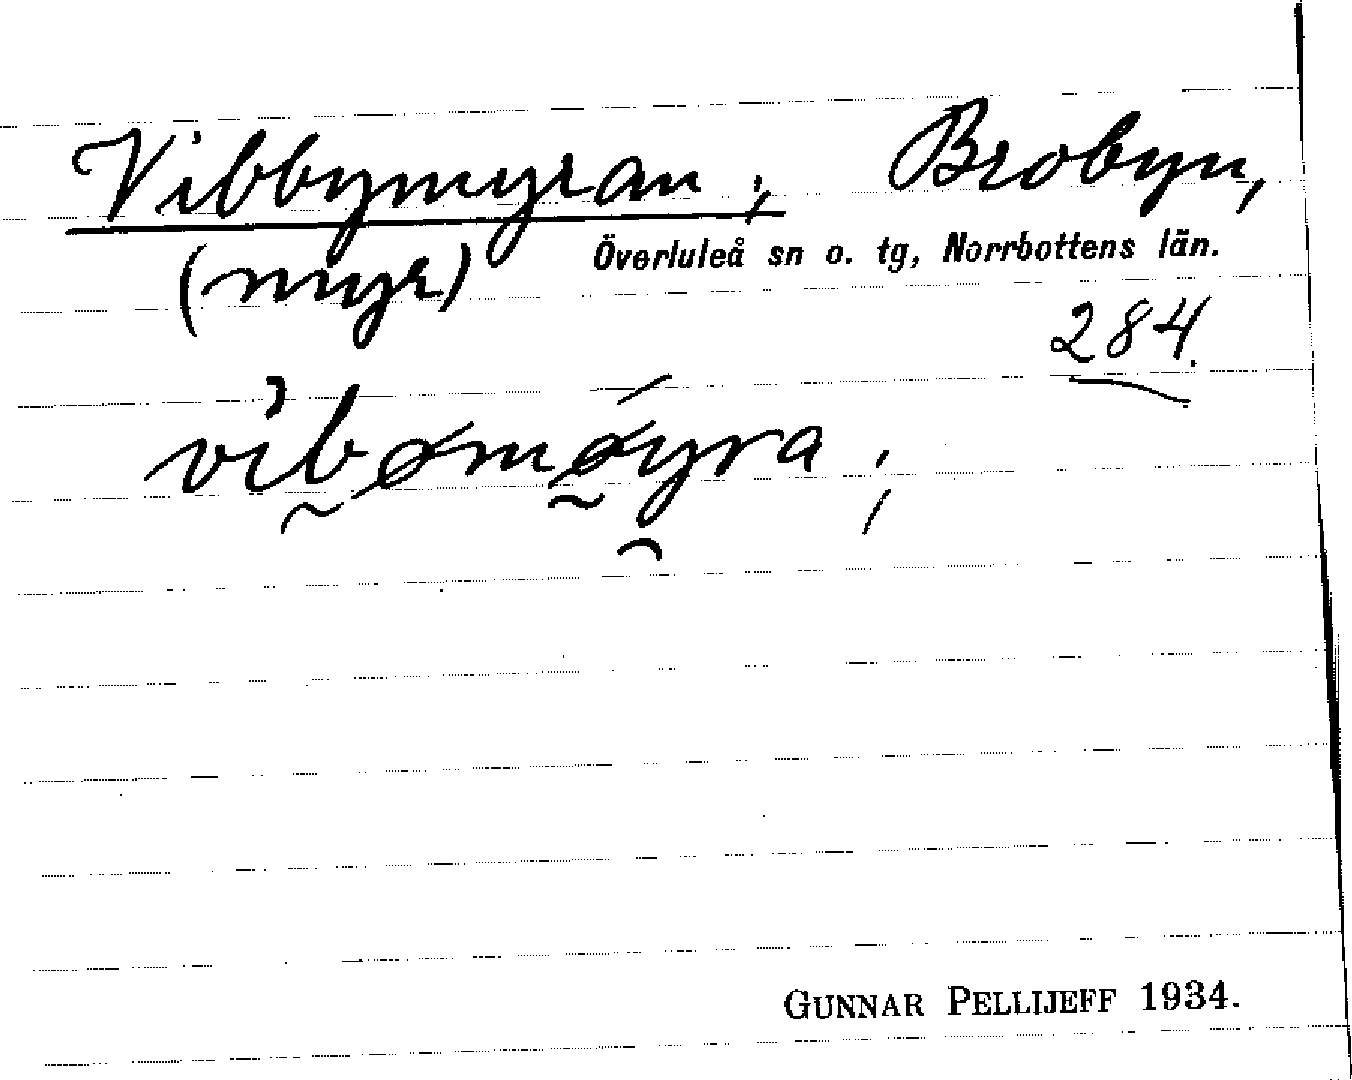 Vibbymyran; Brobyn,
(myr) Överluleå sn o. tg, Norrbottens län.
284.
vibømøyra;
GUNNAR PELLIJEFF 1934.